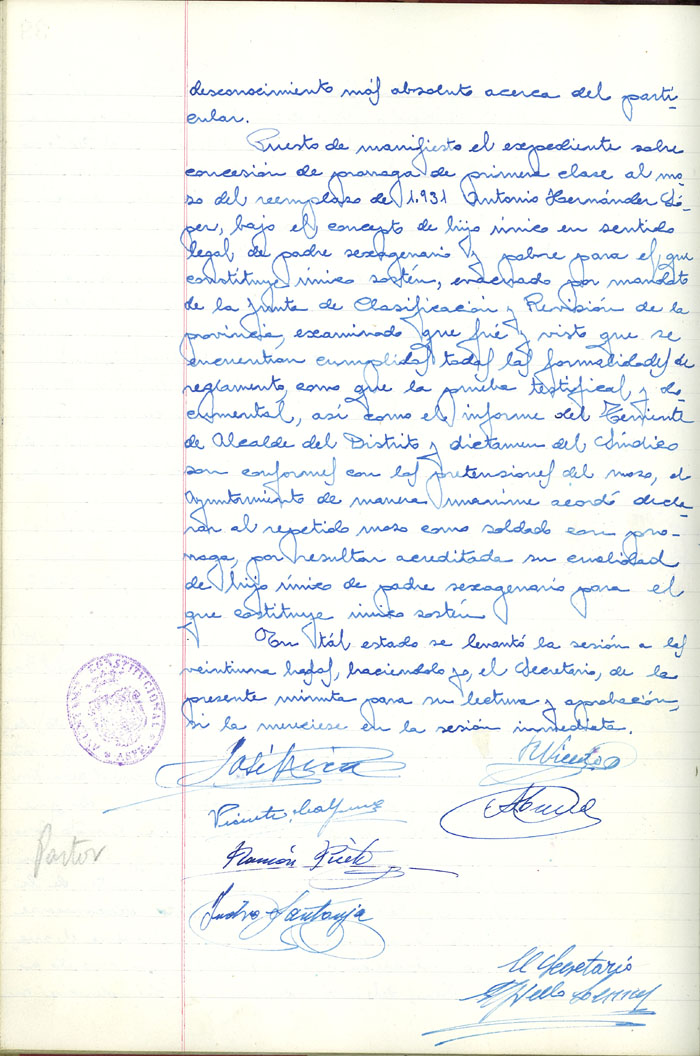 desconocimiento más absoluto acerca del parti-
cular.
Puesto de manifiesto el expediente sobre
concesión de proroga de primera clase al mo-
so del reemplaso de 1.931 Antonio Hernánder Ló-
per, bajo el concepto de hijo único en sentido
legal de padre sexagenario y pobre para el que
constituye único sostén, evacuado por mandato
de la Junta de Clasificación y Revisión de la
provincia, examinado que fué y visto que se
encuentran cumplidas todas las formalidades de
reglamento, como que la prueba testifical y do-
cumental, así como el informe del Teniente
de Alcalde del Distrito y dictamen del Síndico
son conformes con las pretensiones del moso, el
Ayuntamiento de manera unanime acordó decla-
rar al repetido moso como soldado con pro-
roga, por resultar acreditada su cualidad
de hijo único de padre sexagenario para el
que costituye único sostén
En tál estado se levantó la sesión a las
veintiuna horas, haciendolo yo, el Secretario, de la
presente minuta para su lectura y aprobación,
si la mereciese en la sesión inmediata.
AYUNTAMIENTO CONSTITUCIONAL
José Rico
Vicente
Vicente
Ramón Prieto
Pastor
Isidro Santonja
El Secretario